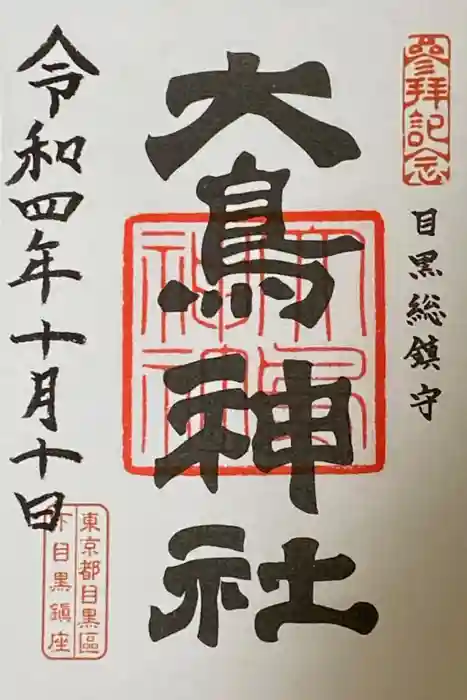 參拝記念
目黒総鎮守
大鳥神社
大鳥神社
令和四年十月十日
東京都目黒區
下目黒鎮座